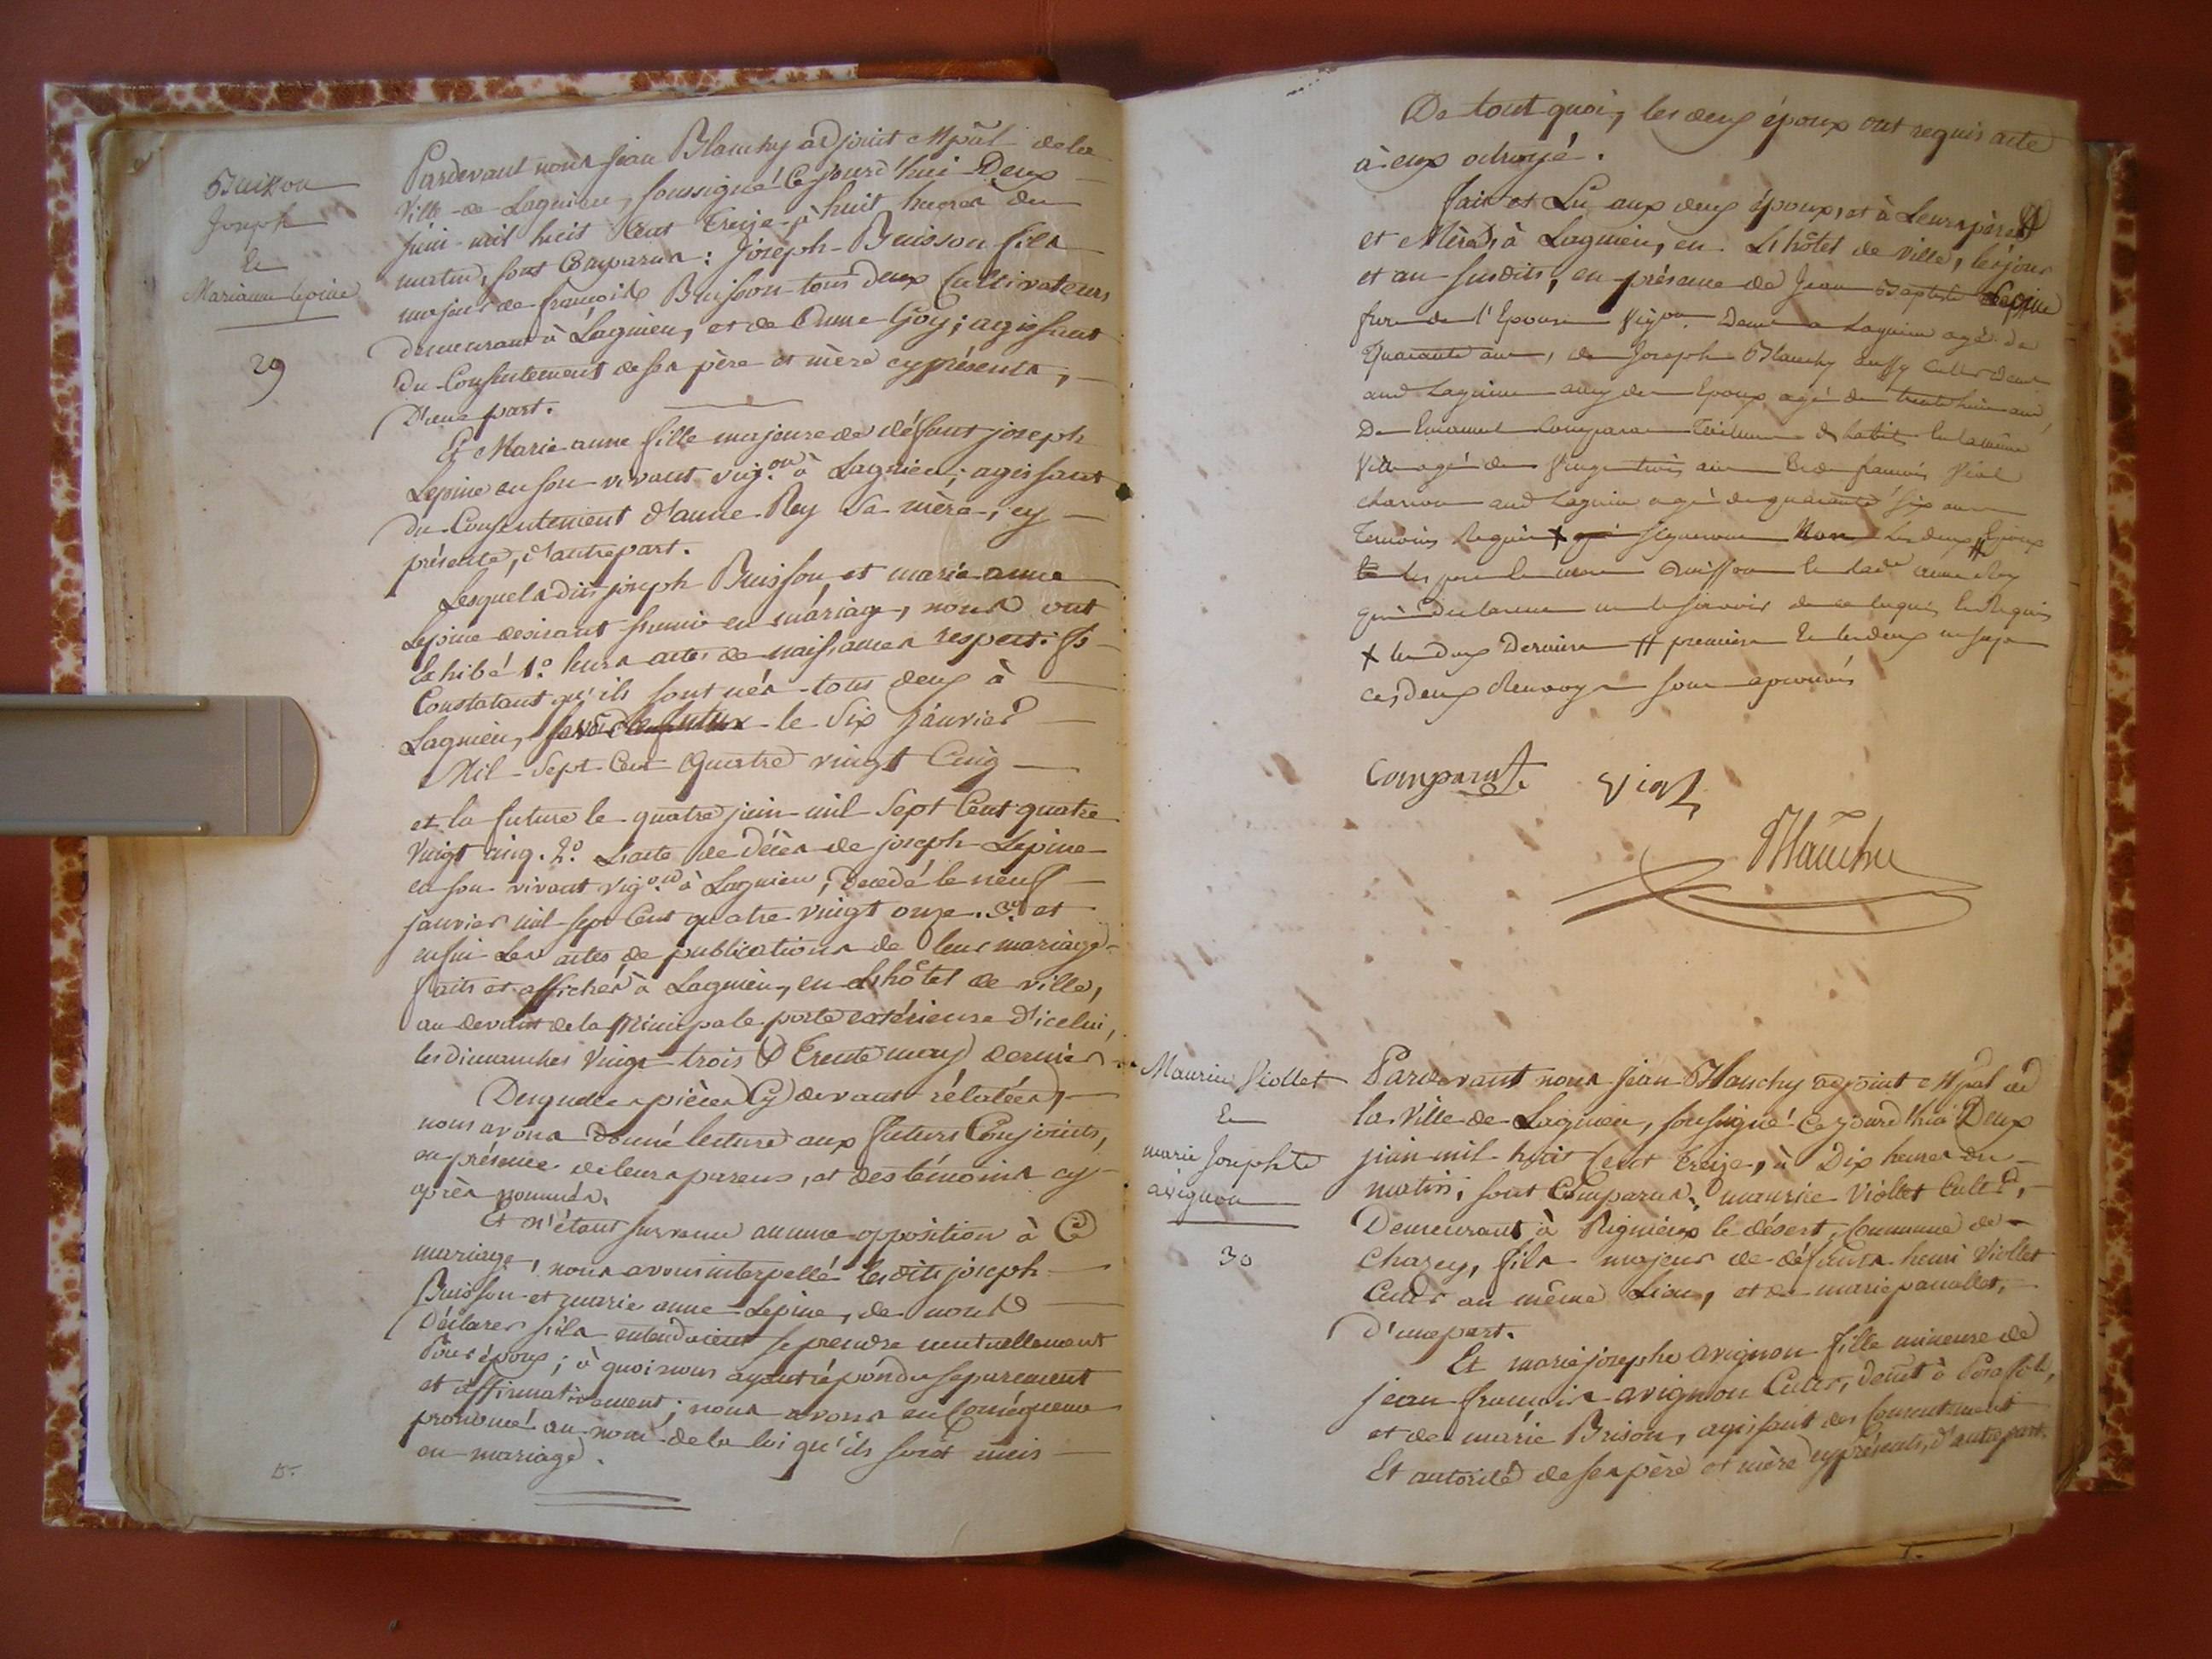 Buisson
Joseph
Et
Marianne lepine
29
Pardevant nous jean Blanchy adjoint Mpal de la
Ville de Lagnieu, soussigné Cejourd'hui Deux
juin mil huit Cent Treize à huit heures du
matin, sont Comparus : Joseph Buisson fils
majeur de françois Buisson tous deux Cultivateurs
demeurant à Lagnieu, et de Anne Goy ; agissant
du Consentement de ses père et mère cy présents,
D'une part.
Et Marie anne fille majeure de déffunt joseph
Lepine en son vivant vig.on à Lagnieu ; agissant
du Consentement d'anne Rey Sa mère, cy
présente, d'autre part.
Lesquels dits joseph Buisson et marie anne
Lepine desirant s'unir en mariage, nous ont
Exhibé 1.o leurs actes de naissances respectifs
Constatant qu'ils sont nés tous deux à
Lagnieu, le Six janvier
Mil Sept Cent Quatre vingt Cinq
et la future le quatre juin mil Sept Cent quatre
Vingt cinq. 2.o L'acte de décès de joseph Lepine
en son vivant vig.on à Lagnieu, Decedé le neuf
janvier mil sept Cent quatre vingt onze. 3.o et
enfin Les actes de publications de leur mariage
faits et affichés à Lagnieu, en L'hôtel de ville,
au devant de la Principale porte extérieure d'icelui,
les dimanches Vingt trois & Trente may dernier.
Desquelles pièces Cy devant rélatées,
nous avons Donné lecture aux futurs Conjoints,
en présence de leurs parens, et des témoins cy
après nommés.
Et n'étant survenu aucune opposition à Ce
mariage, nous avons interpellé les dits joseph
Buisson et marie anne Lepine, de nous
Déclarer s'ils entendoient se prendre mutuellement
Pour époux ; à quoi nous ayant répondu separement
et affirmativement ; nous avons en Conséquence
prononcé au nom de la loi qu'ils sont unis
en mariage.
De tout quoi, les deux époux ont requis acte
à eux octroyé.
Fait et Lu aux deux époux, et à Leurs pères
et Mères, à Lagnieu, en L'hôtel de ville, les jour
et an susdits, en présence de Jean Baptiste Lepine
frere de l'Epouse Vig.on Demt a Lagnieu agé de
Quarante ans, de Joseph Blanchy aussy Cultr Demt
aud Lagnieu amy des Epoux agé de trente huit ans,
De Emanuel Comparat Tailleur d habits En la même
Ville agé de Vingt trois ans Et de francois Vial
charron aud Lagnieu agé de quarante six ans
Temoins Requis X signeront Non Les deux # Epoux
les pere Et mere Buisson Et lade anne Rey
qui Declarent ne le savoir de ce Enquis Et Requis
X les deux Derniers # premiers Et les deux
ces deux Renvoys sont aprouvés
Comparat Vial
Blanchy
Maurice Viollet
Et
marie Josephte
avignon
30
Pardevant nous jean Blanchy adjoint Mpal de
la Ville de Lagnieu, soussigné Cejourd'hui Deux
juin mil huit Cent treize, à Dix heures du
matin, sont Comparus ; maurice Viollet Cultr,
Demeurant à Rignieux le désert, Commune de
Chazey, fils majeur de défunts henri Viollet
Cultr au même Lieu, et de marie panallet,
D'une part.
Et marie josephe avignon fille mineure de
jean francois avignon Cultr, demt à Posafol,
et de marie Brison, agissant des Consentement
Et autorité de ses père et mère cy présents, d'autre part.